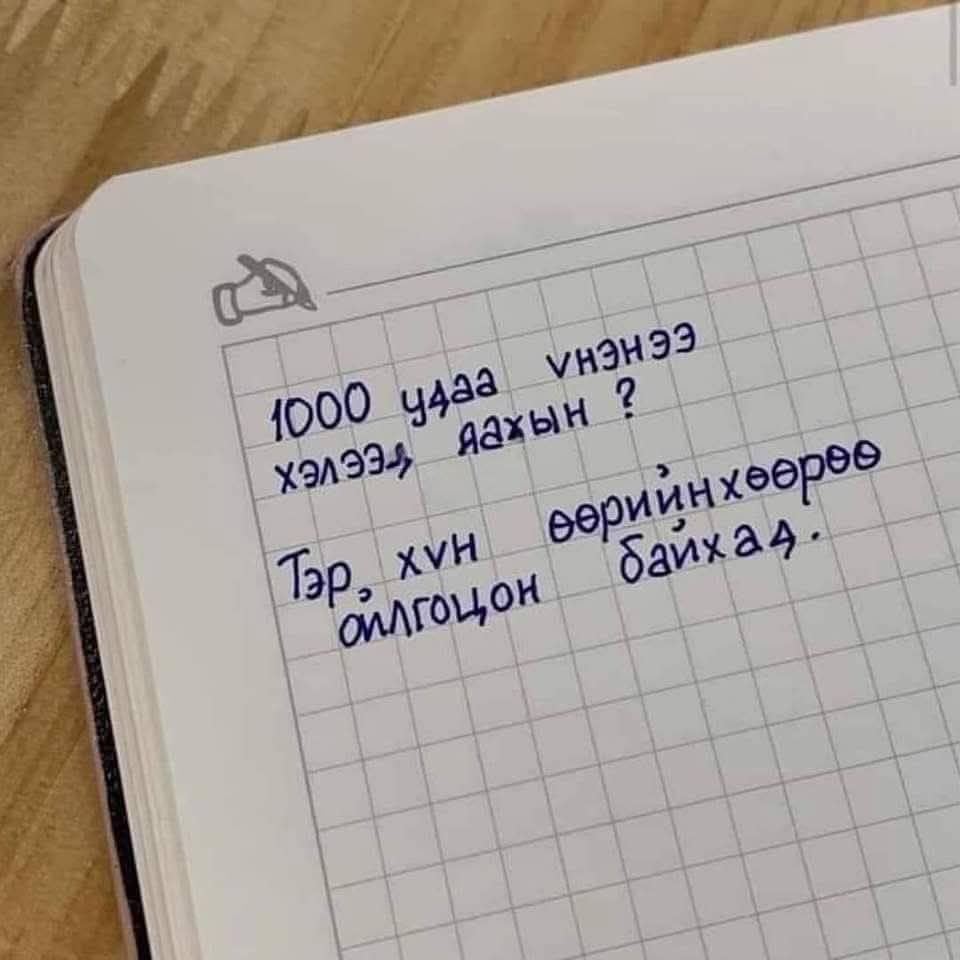 1000 удаа үнэнээ
хэлээд яахын ?
Тэр, хүн өөрийнхөөрөө
ойлгоцон байхад.